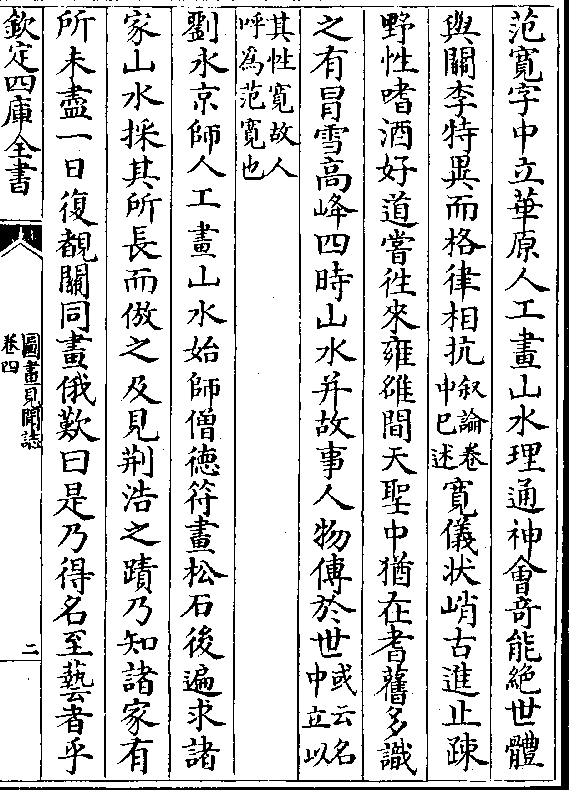 范寛字中立華原人工畫山水理通神會奇能絶世體
與關李特異而格律相抗叙論卷中已述寛儀状峭古進止疎
野性嗜酒好道嘗徃來雍雒間天聖中猶在耆舊多識
之有冒雪高峰四時山水并故事人物傳於世或云名中立以
其性寛故人呼為范寛也
劉永京師人工畫山水始師僧德符畫松石後遍求諸
家山水採其所長而倣之及見荆浩之蹟乃知諸家有
所未盡一日復覩關同畫俄歎曰是乃得名至藝者乎
欽定四庫全書
圖畫見聞誌
卷四
二